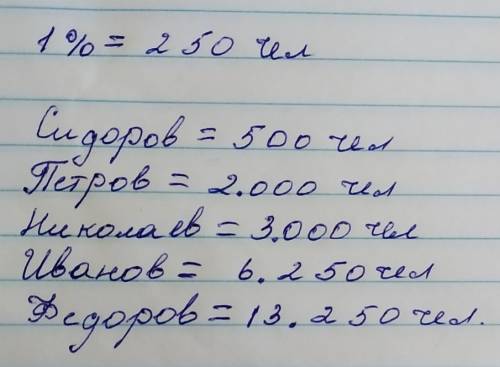 1% = 250 чел
Сидоров = 500 чел
Петров = 2.000 чел
Николаев = 3.000 чел
Иванов = 6.250 чел
Федоров = 13.250 чел.